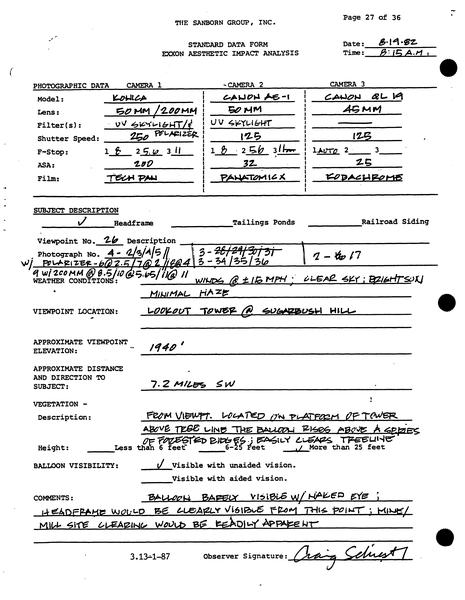 Page 27 of 36
THE SANBORN GROUP, INC.
STANDARD DATA FORM
EXXON AESTHETIC IMPACT ANALYSIS
Date: 8-19-82
Time: 8:15 A.M.
PHOTOGRAPHIC DATA CAMERA 1 CAMERA 2 CAMERA 3
Model: KONICA CANON AE-1 CANON QL 19
Lens: 50MM/200MM 50MM 45MM
Filter(s): UV SKYLIGHT/ POLARIZER UV SKYLIGHT
Shutter Speed: 250 125 125
F-Stop: 1 8 2 5.6 3 11 1 8 2 5.6 3 11 1 AUTO 2 3
ASA: 200 32 25
Film: TECH PAN PANATOMIC X KODACHROME
SUBJECT DESCRIPTION
✓ Headframe Tailings Ponds Railroad Siding
Viewpoint No. 26 Description
Photograph No. 4 - 2/3/4/5 3 - 28/29/30/31 2 - 17
W/ POLARIZER - 3 - 34/35/36
W/200MM @ 8.5/10 @ 11
WEATHER CONDITIONS: WINDS @ ±15 MPH; CLEAR SKY; BRIGHT SUN
MINIMAL HAZE
VIEWPOINT LOCATION: LOOKOUT TOWER @ SUGARBUSH HILL
APPROXIMATE VIEWPOINT
ELEVATION: 1940'
APPROXIMATE DISTANCE
AND DIRECTION TO
SUBJECT: 7.2 MILES SW
VEGETATION -
Description: FROM VIEWPT. LOCATED ON PLATFORM OF TOWER
ABOVE TREE LINE THE BALLOON RISES ABOVE A SERIES
OF FORESTED RIDGES; EASILY CLEARS TREELINE
Height: Less than 6 feet 6-25 Feet ✓ More than 25 feet
BALLOON VISIBILITY: ✓ Visible with unaided vision.
Visible with aided vision.
COMMENTS: BALLOON BARELY VISIBLE W/ NAKED EYE;
HEADFRAME WOULD BE CLEARLY VISIBLE FROM THIS POINT; MINE/
MILL SITE CLEARING WOULD BE READILY APPARENT
3.13-1-87 Observer Signature: Craig